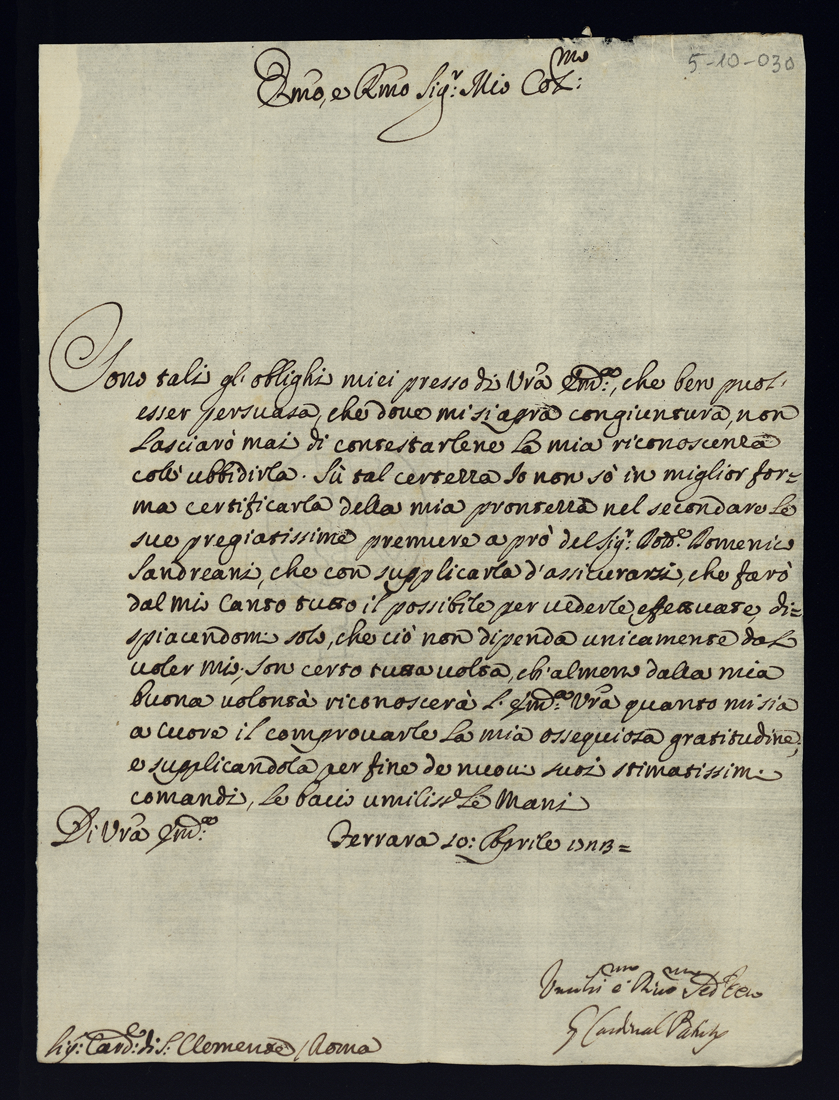 5-10-030
Emo, e Rmo Sig.r Mio Col:mo
Sono tali gl'oblighi miei presso di Vrã Em.za, che ben puol'
esser persuasa, che dove mi si aprã congiuntura, non
lasciarò mai di contestarlene la mia riconoscenza
coll'ubbidirla. Sù tal certezza Io non sò in miglior for=
ma certificarla della mia prontezza nel secondare le
sue pregiatissime premure a prò del Sig.r Dott.e Domenico
Sandreani, che con supplicarla d'assicurarsi, che farò
dal mio Canto tutto il possibile per vederle effettuate, di=
spiacendomi solo, che ciò non dipenda unicamente dal
voler mio. Son certo tutta volta, ch'almeno dalla mia
buona volontà riconoscerà l'Em.za Vrã quanto mi sia
a cuore il comprovarle la mia ossequiosa gratitudine;
e supplicandola per fine de nuovi suoi stimatissimi
comandi, le bacio umiliss.te le Mani
Di Vrã Em.za
Ferrara 10: Aprile
Umilis.mo e Riv.mo Ser.
Cardinal
Sig.r Card.le di S. Clemente / Roma